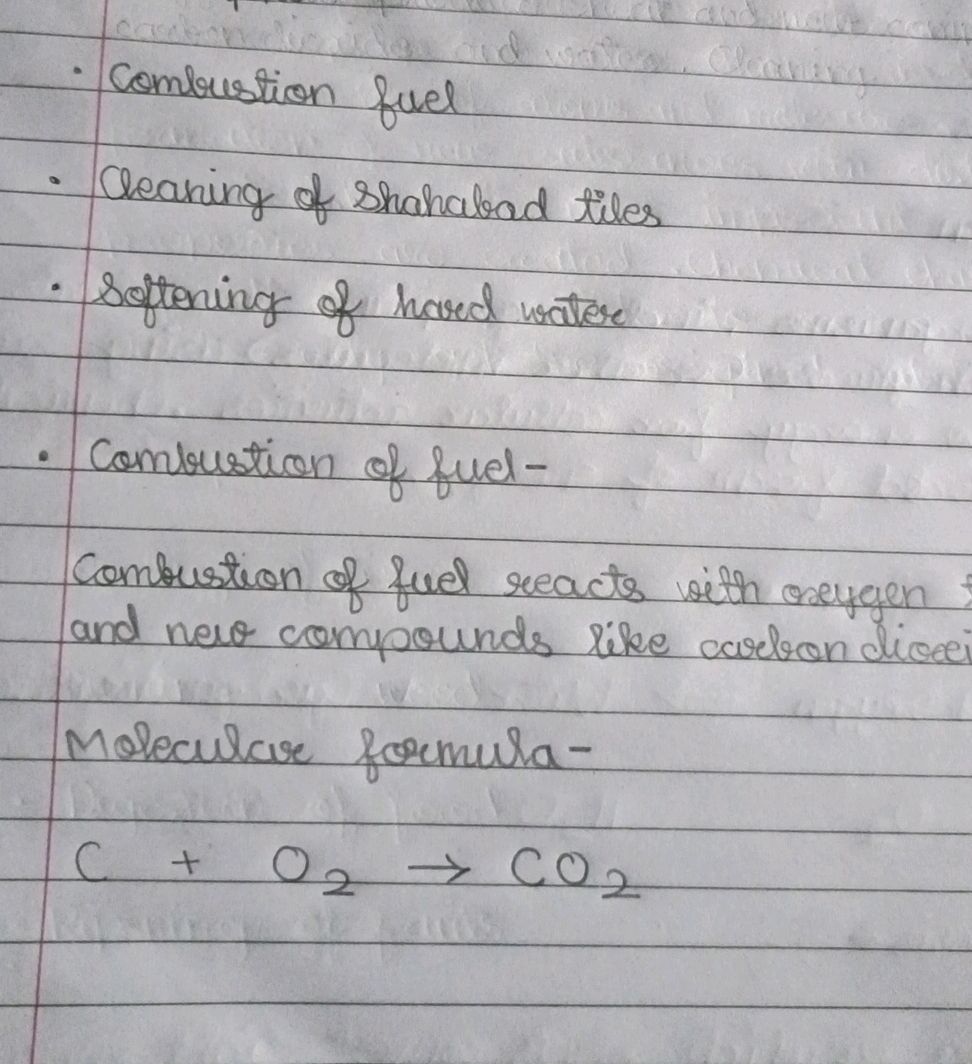 • Combustion fuel
• Cleaning of Shahabad tiles
• Softening of hard water
• Combustion of fuel -
Combustion of fuel reacts with oxygen
and new compounds like carbon dioxi
Molecular formula -
C + O₂ → CO₂